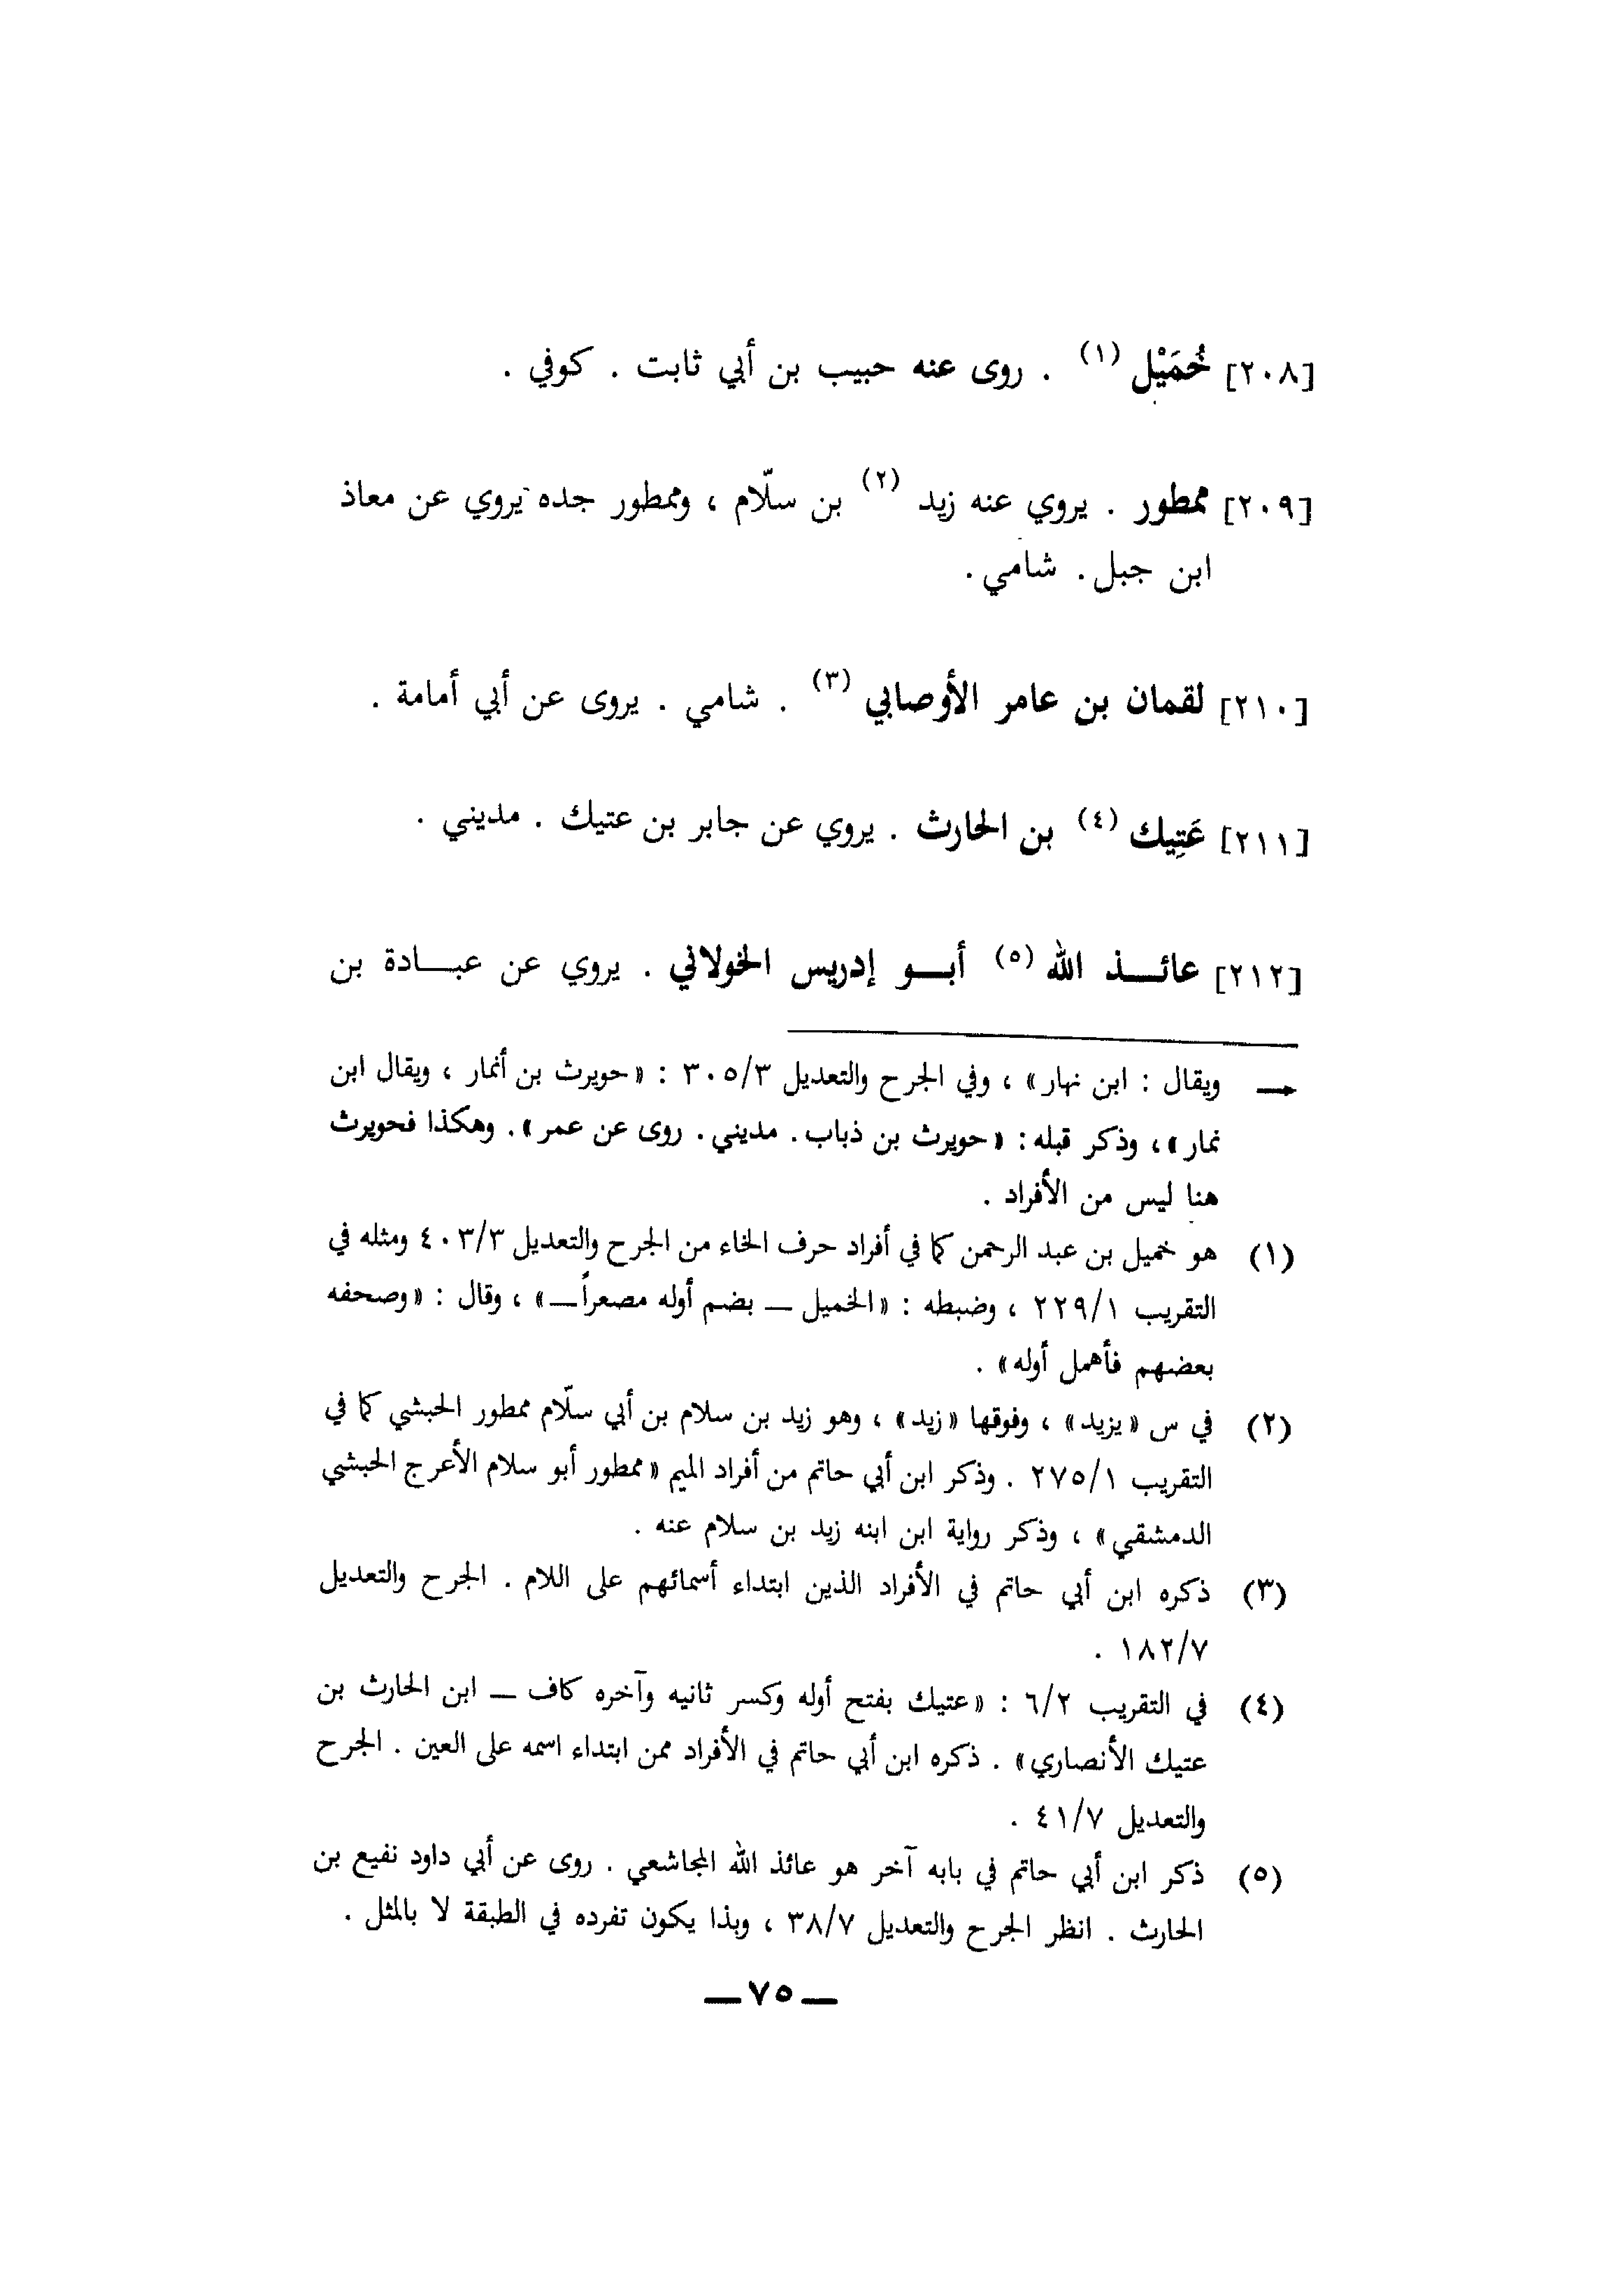 [٢٠٨] خُمَيْل (١) . روى عنه حبيب بن أبي ثابت . كوفي .
[٢٠٩] ممطور . يروي عنه زيد (٢) بن سلّام ، وممطور جده يروي عن معاذ
ابن جبل . شامي .
[٢١٠] لقمان بن عامر الأوصابي (٣) . شامي . يروى عن أبي أمامة .
[٢١١] عَتِيك (٤) بن الحارث . يروي عن جابر بن عتيك . مديني .
[٢١٢] عائـــذ الله (٥) أبـــو إدريس الخولاني . يروي عن عبـــادة بن
ويقال : ابن نهار» ، وفي الجرح والتعديل ٣٠٥/٣ : «حويرث بن أنمار ، ويقال ابن
نمار» ، وذكر قبله : «حويرث بن ذباب . مديني . روى عن عمر» . وهكذا فحويرث
هنا ليس من الأفراد .
(١) هو خميل بن عبد الرحمن كما في أفراد حرف الخاء من الجرح والتعديل ٤٠٣/٣ ومثله في
التقريب ٢٢٩/١ ، وضبطه : «الخميل ــ بضم أوله مصعراً ــ» ، وقال : «وصحفه
بعضهم فأهمل أوله» .
(٢) في س «يزيد» ، وفوقها «زيد» ، وهو زيد بن سلام بن أبي سلّام ممطور الحبشي كما في
التقريب ٢٧٥/١ . وذكر ابن أبي حاتم من أفراد الميم «ممطور أبو سلام الأعرج الحبشي
الدمشقي» ، وذكر رواية ابن ابنه زيد بن سلام عنه .
(٣) ذكره ابن أبي حاتم في الأفراد الذين ابتداء أسمائهم على اللام . الجرح والتعديل
١٨٢/٧ .
(٤) في التقريب ٦/٢ : «عتيك بفتح أوله وكسر ثانيه وآخره كاف ــ ابن الحارث بن
عتيك الأنصاري» . ذكره ابن أبي حاتم في الأفراد ممن ابتداء اسمه على العين . الجرح
والتعديل ٤١/٧ .
(٥) ذكر ابن أبي حاتم في بابه آخر هو عائذ الله المجاشعي . روى عن أبي داود نفيع بن
الحارث . انظر الجرح والتعديل ٣٨/٧ ، وبذا يكون تفرده في الطبقة لا بالمثل .
ــ ٧٥ ــ